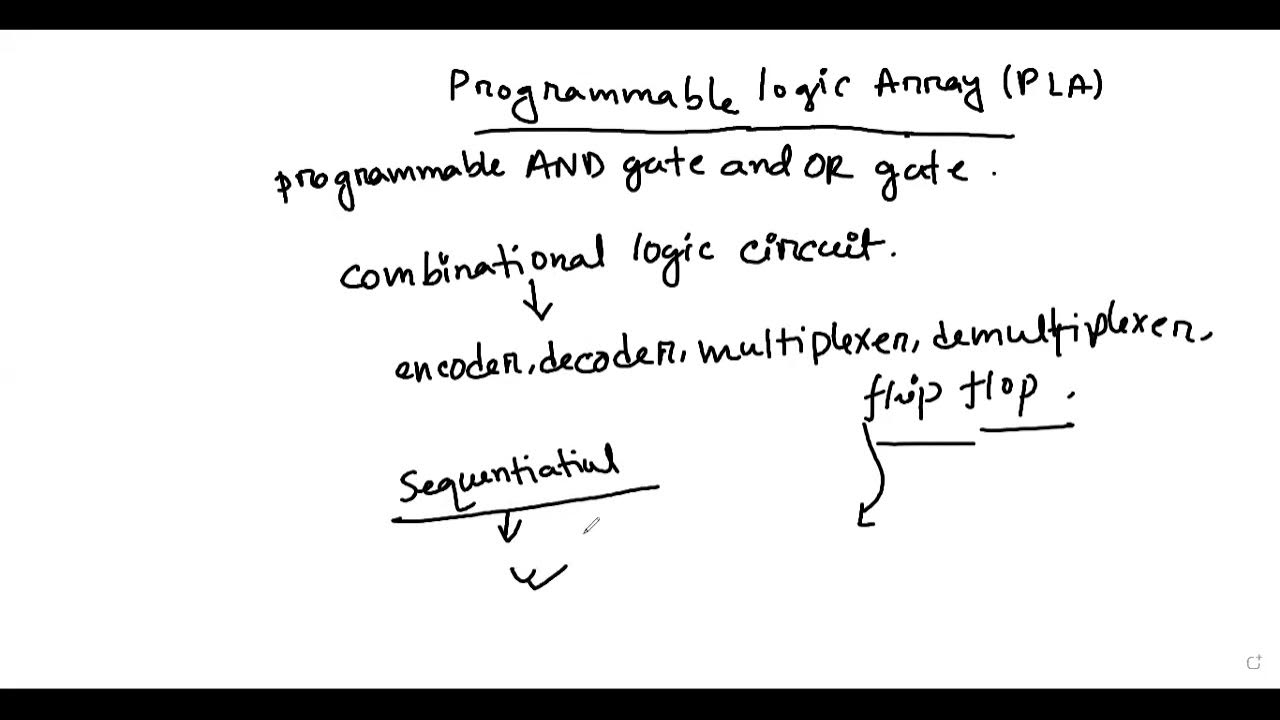 Programmable logic Array (PLA)
programmable AND gate and OR gate.
combinational logic circuit.
encoder, decoder, multiplexer, demultiplexer,
flip flop.
Sequentiatial